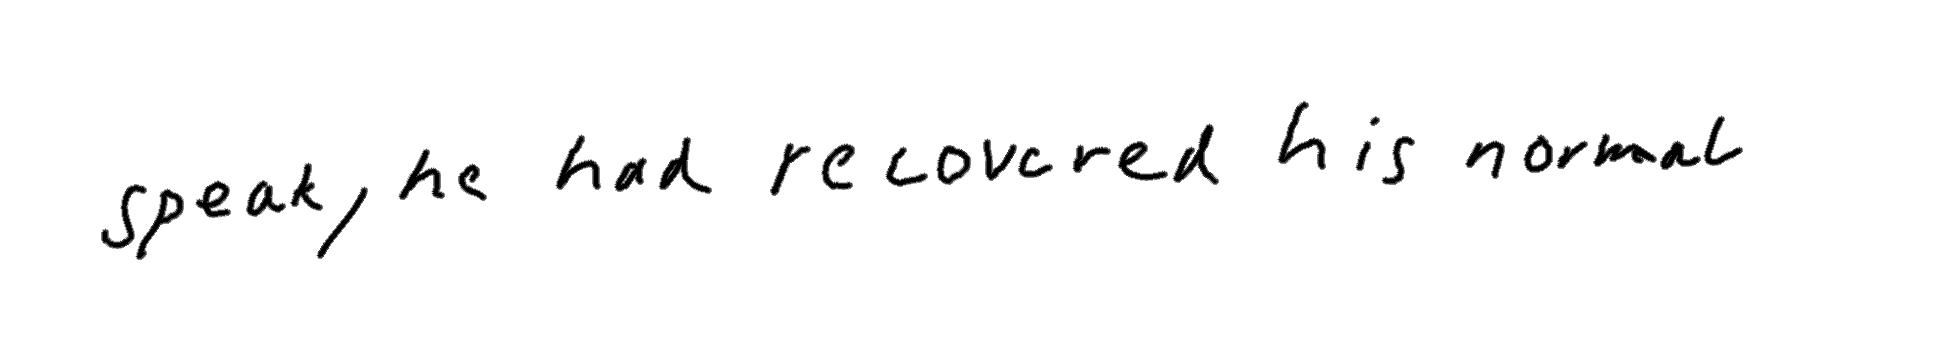 speak, he had recovered his normal